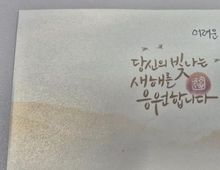 어려운
당신의 빛나는
새해를
응원합니다